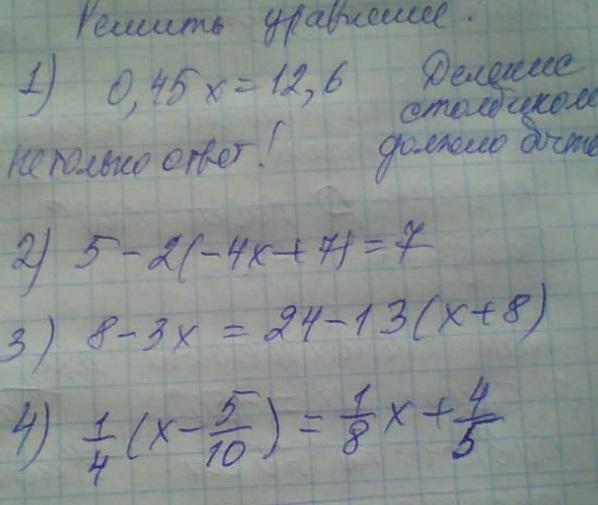 Решить уравнение.
1) 0,45x = 12,6 Деление
столбиком
не только ответ! должно быть
2) 5 - 2(-4x+7) = 7
3) 8 - 3x = 24 - 13(x+8)
4) 1/4 (x - 5/10) = 1/8 x + 4/5